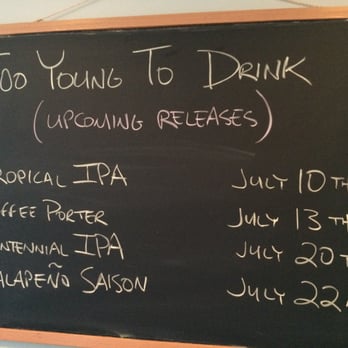 OO YOUNG TO DRINK
(UPCOMING RELEASES)
ROPICAL IPA JULY 10TH
FFEE PORTER JULY 13TH
NTENNIAL IPA JULY 20T
ALAPEÑO SAISON JULY 22